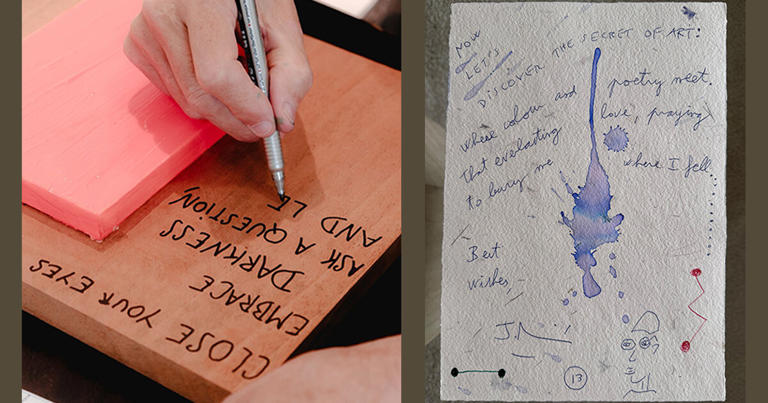 CLOSE YOUR EYES
EMBRACE
DARKNESS
ASK A QUESTION,
AND LE
NOW
LET'S
DISCOVER THE SECRET OF ART:
where colour and poetry meet.
that everlasting love, praying
to bury me where I fell.
Best
wishes,
13